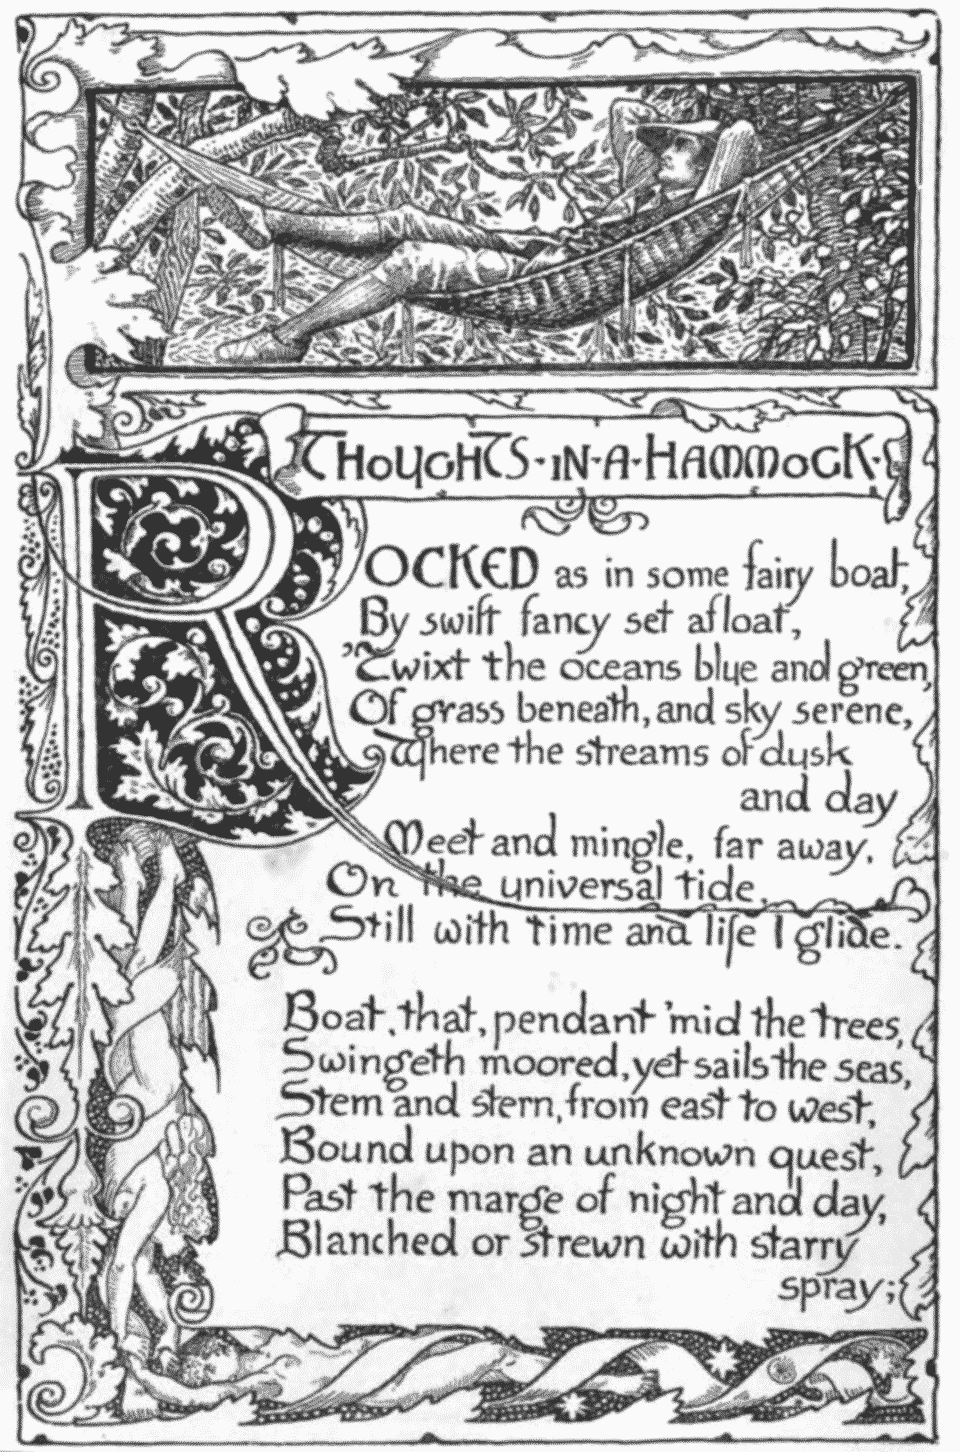 THOUGHTS·IN·A·HAMMOCK·
ROCKED as in some fairy boat,
By swift fancy set afloat,
'Twixt the oceans blue and green,
Of grass beneath, and sky serene,
Where the streams of dusk
and day
Meet and mingle, far away.
On the universal tide,
Still with time and life I glide.
Boat, that, pendant 'mid the trees,
Swingeth moored, yet sails the seas,
Stem and stern, from east to west,
Bound upon an unknown quest,
Past the marge of night and day,
Blanched or strewn with starry
spray;